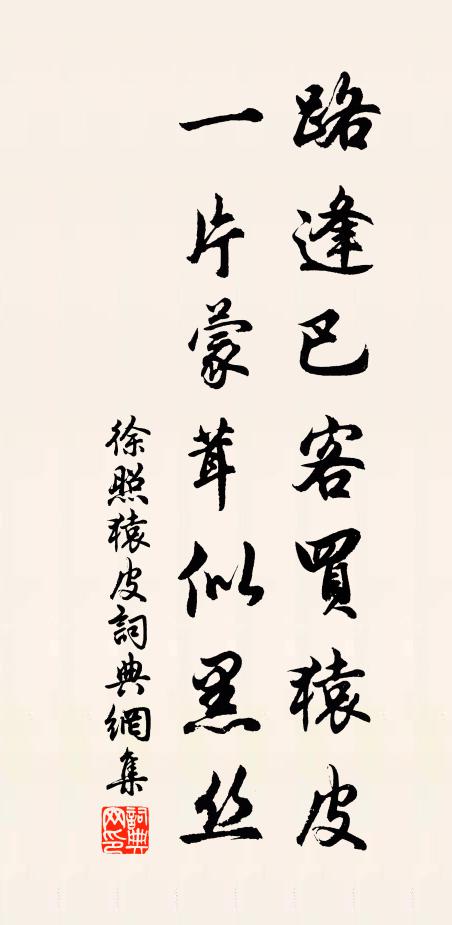 路逢巴客買猿皮
一片蒙茸似黑丝
徐照猿皮詞典網集
詞典
网印